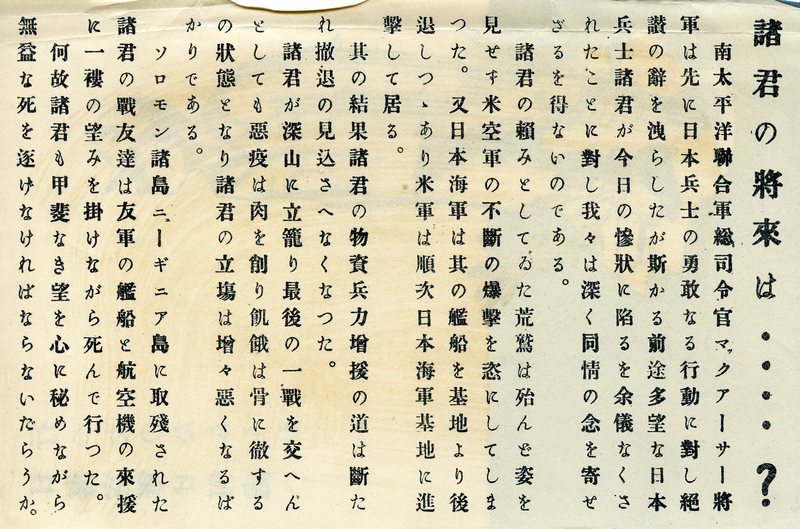 諸君の將來は・・・・?
南太平洋聯合軍総司令官マックアーサー將
軍は先に日本兵士の勇敢なる行動に對し絕
讃の辭を洩らしたが斯かる前途多望な日本
兵士諸君が今日の慘狀に陷るを余儀なくさ
れたことに對し我々は深く同情の念を寄せ
ざるを得ないのである。
諸君の賴みとしてゐた荒鷲は殆んど姿を
見せず米空軍の不斷の爆擊を恣にしてしま
つた。又日本海軍は其の艦船を基地より後
退しつゝあり米軍は順次日本海軍基地に進
擊して居る。
其の結果諸君の物資兵力增援の道は斷た
れ撤退の見込さへなくなつた。
諸君が深山に立籠り最後の一戰を交へん
としても惡疫は肉を削り飢餓は骨に徹する
の狀態となり諸君の立場は增々惡くなるば
かりである。
ソロモン諸島ニーギニア島に取殘された
諸君の戰友達は友軍の艦船と航空機の來援
に一褸の望みを掛けながら死んで行つた。
何故諸君も甲斐なき望を心に秘めながら
無益な死を逐げなければならないだらうか。